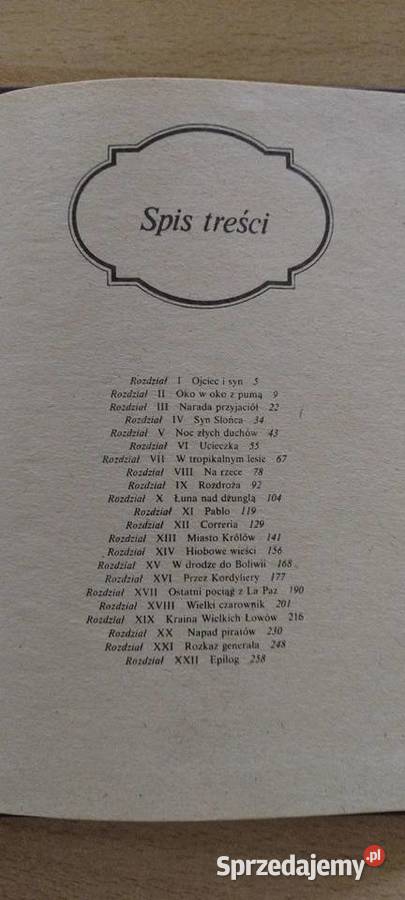 Spis treści
Rozdział I Ojciec i syn 5
Rozdział II Oko w oko z pumą 9
Rozdział III Narada przyjaciół 22
Rozdział IV Syn Słońca 34
Rozdział V Noc złych duchów 43
Rozdział VI Ucieczka 55
Rozdział VII W tropikalnym lesie 67
Rozdział VIII Na rzece 78
Rozdział IX Rozdroża 92
Rozdział X Łuna nad dżunglą 104
Rozdział XI Pablo 119
Rozdział XII Correria 129
Rozdział XIII Miasto Królów 141
Rozdział XIV Hiobowe wieści 156
Rozdział XV W drodze do Boliwii 168
Rozdział XVI Przez Kordyliery 177
Rozdział XVII Ostatni pociąg z La Paz 190
Rozdział XVIII Wielki czarownik 201
Rozdział XIX Kraina Wielkich Łowów 216
Rozdział XX Napad piratów 230
Rozdział XXI Rozkaz generała 248
Rozdział XXII Epilog 258
Sprzedajemy.pl